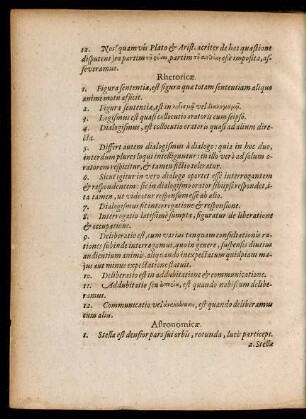 12. Nos (quam vis Plato & Arist. acriter de hoc quæstione
disputent) ea partim τῇ φύσει partim τῇ θέσει esse imposita, as-
severamus.
Rhetoricæ.
1. Figura sententiæ, est figura quæ totam sententiam aliquo
animi motu afficit.
2. Figura sententiæ, est in vel
3. Logismus est quasi collectio oratoris cum seipso.
4. Dialogismus, est collocutio oratoris quasi ad alium dire-
cta.
5. Differt autem dialogismus à dialogo: quia in hoc duo,
interdum plures loqui intelliguntur: in illo verò ad solum o-
ratorem respicitur, & tamen fictio toleratur.
6. Sicut igitur in vero dialogo oportet esse interrogantem
& respondentem: sic in dialogismo orator sibi ipsi respondet, i-
ta tamen, ut videatur respensum esse ab alio.
7. Dialogismus fit interrogatione & responsione.
8. Interrogatio latissimè sumpta, figuratur deliberatione
& occupatione.
9. Deliberatio est, cum varias tanquam consultationis ra-
tiones subinde interrogamus, quo in genere, suspensis diutius
audientium animis, aliquando inexpectatum quidpiam ma-
jus aut minus expectatione statuit.
10. Deliberatio est in addubitatione & communicatione.
11. Addubitatio seu ἀπορία, est quando nobiscum delibe-
ramus.
12. Communicatio, vel ἀνακοίνωσις, est quando deliberamus
cum aliis.
Astronomicæ.
1. Stella est densior pars sui orbis, rotunda, lucis particeps.
2. Stella